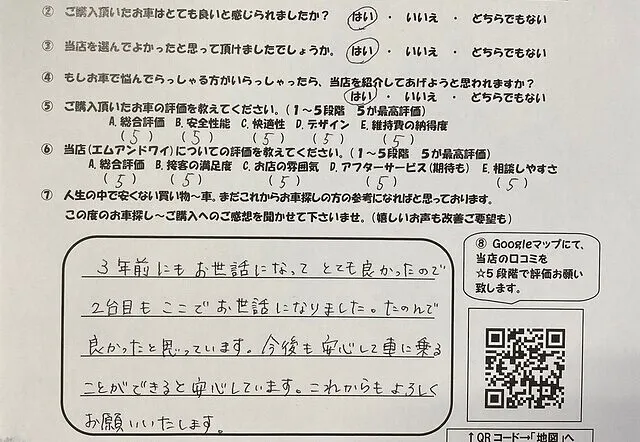 ② ご購入頂いたお車はとても良いと感じられましたか？ はい ・ いいえ ・ どちらでもない
③ 当店を選んでよかったと思って頂けましたでしょうか。 はい ・ いいえ ・ どちらでもない
④ もしお車で悩んでらっしゃる方がいらっしゃったら、当店を紹介してあげようと思われますか？
はい ・ いいえ ・ どちらでもない
⑤ ご購入頂いたお車の評価を教えてください。（１～５段階　５が最高評価）
A. 総合評価　B. 安全性能　C. 快適性　D. デザイン　E. 維持費の納得度
(5) (5) (5) (5) (5)
⑥ 当店（エムアンドワイ）についての評価を教えてください。（１～５段階　５が最高評価）
A. 総合評価　B. 接客の満足度　C. お店の雰囲気　D. アフターサービス（期待も）　E. 相談しやすさ
(5) (5) (5) (5) (5)
⑦ 人生の中で安くない買い物～車。まだこれからお車探しの方の参考になればと思っております。
この度のお車探し～ご購入へのご感想を聞かせて下さいませ。（嬉しいお声も改善ご要望も）
3年前にも お世話になって とても良かったので
2台目も ここで お世話になりました。たのんで
良かったと思っています。今後も 安心して車に乗る
ことができると安心しています。これからもよろしく
お願いいたします。
⑧ Googleマップにて、
当店の口コミを
☆５段階で評価お願い
致します。
↑QRコード→「地図」へ